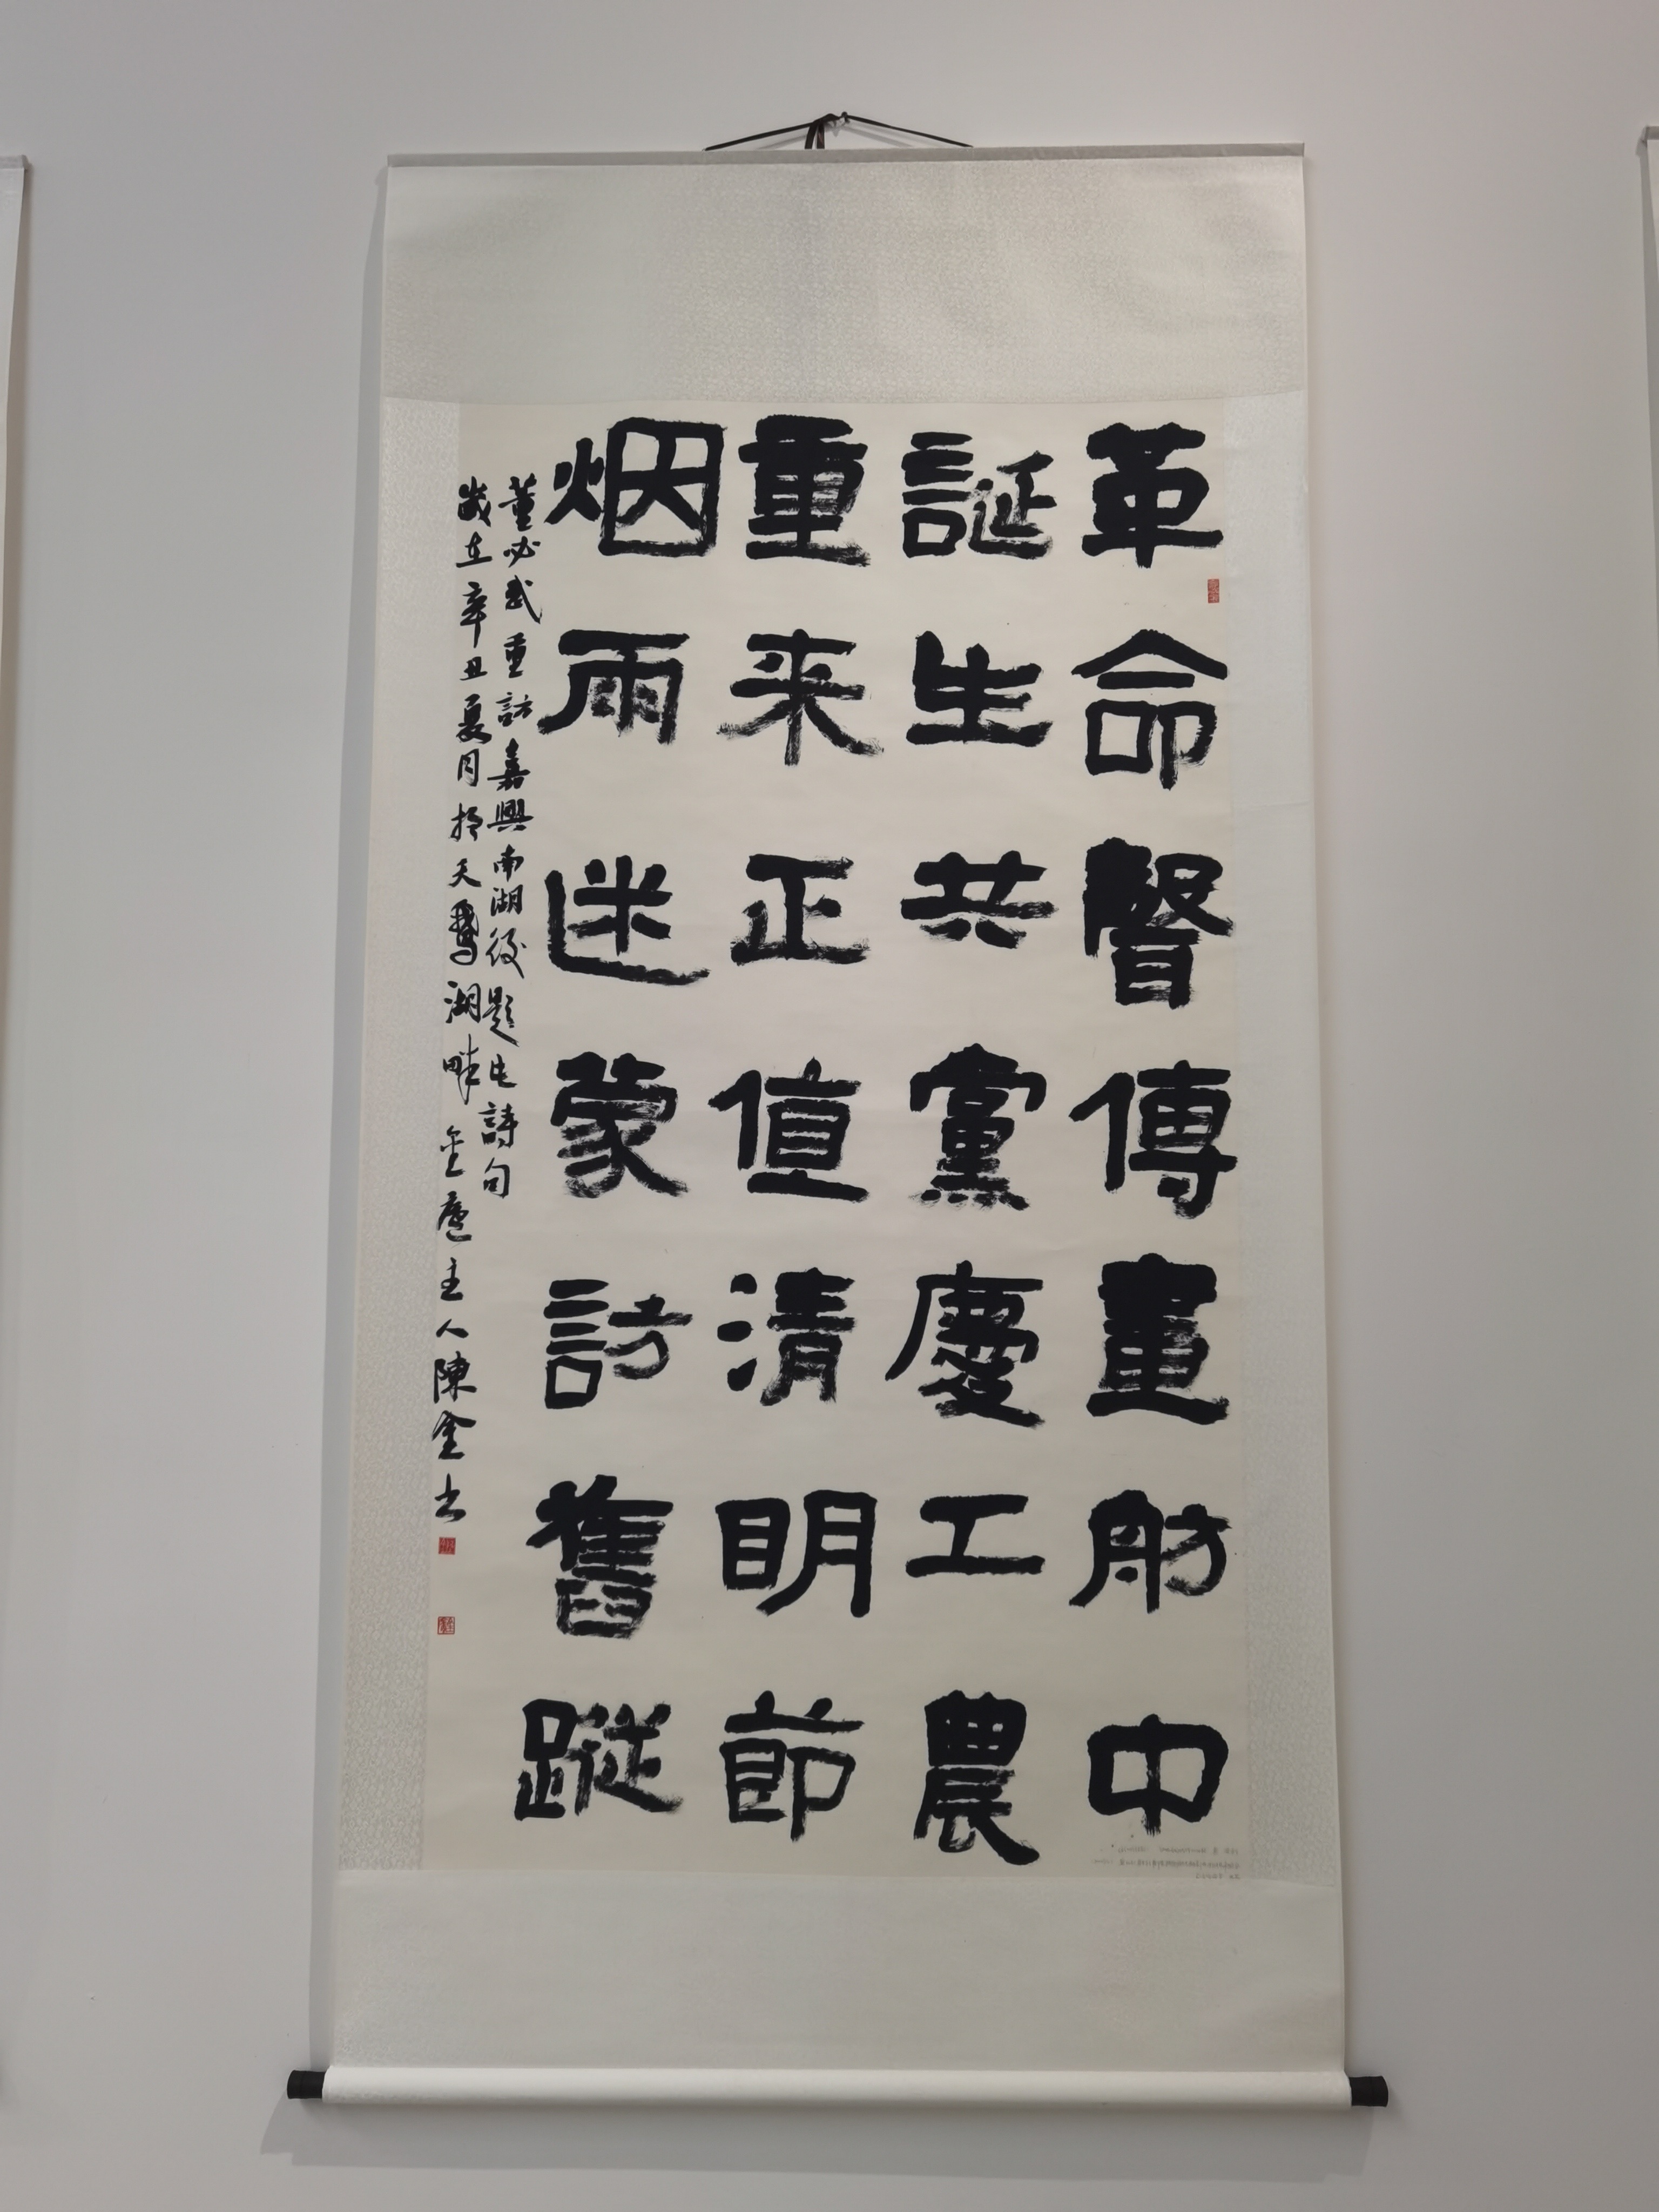 革命聲傳畫舫中
誕生共黨慶工農
重来正值清明節
烟雨迷蒙訪舊蹤
董必武重訪嘉興南湖後題此詩句
歲在辛丑夏月於天鵝湖畔金廬主人陳金書